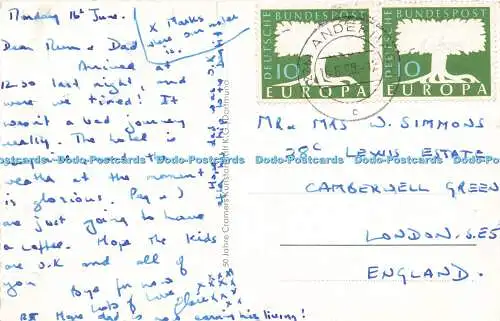 Monday 16th June.
X Marks
where our hotel
is.
Dear Mum & Dad
Arrived at
12-30 last night, and
were we tired! It
wasn't a bad journey
really. The hotel is
the
weather at the moment
is glorious. Peg & I
are just going to have
a coffee. Hope the kids
are O.K and all of
you
Bye for now
Lots of Love
Hope dad is earning his living!
50 Jahre Cramers Kunstanstalt KG Dortmund
DEUTSCHE BUNDESPOST
10
EUROPA
DEUTSCHE BUNDESPOST
10
EUROPA
ANDER
MR & MRS W. SIMMONS
28C LEWIS ESTATE
CAMBERWELL GREEN
LONDON. S.E5
ENGLAND.
Dodo-Postcards Dodo-Postcards Dodo-Postcards Dodo-Postcards Dodo-Postcards